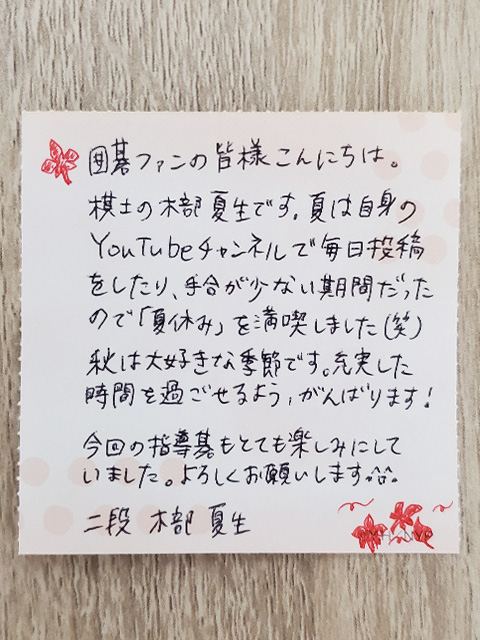 囲碁ファンの皆様こんにちは。
棋士の木部夏生です。夏は自身の
YouTubeチャンネルで毎日投稿
をしたり、手合が少ない期間だった
ので「夏休み」を満喫しました(笑)
秋は大好きな季節です。充実した
時間を過ごせるよう、がんばります!
今回の指導碁もとても楽しみにして
いました。よろしくお願いします^^
二段 木部 夏生